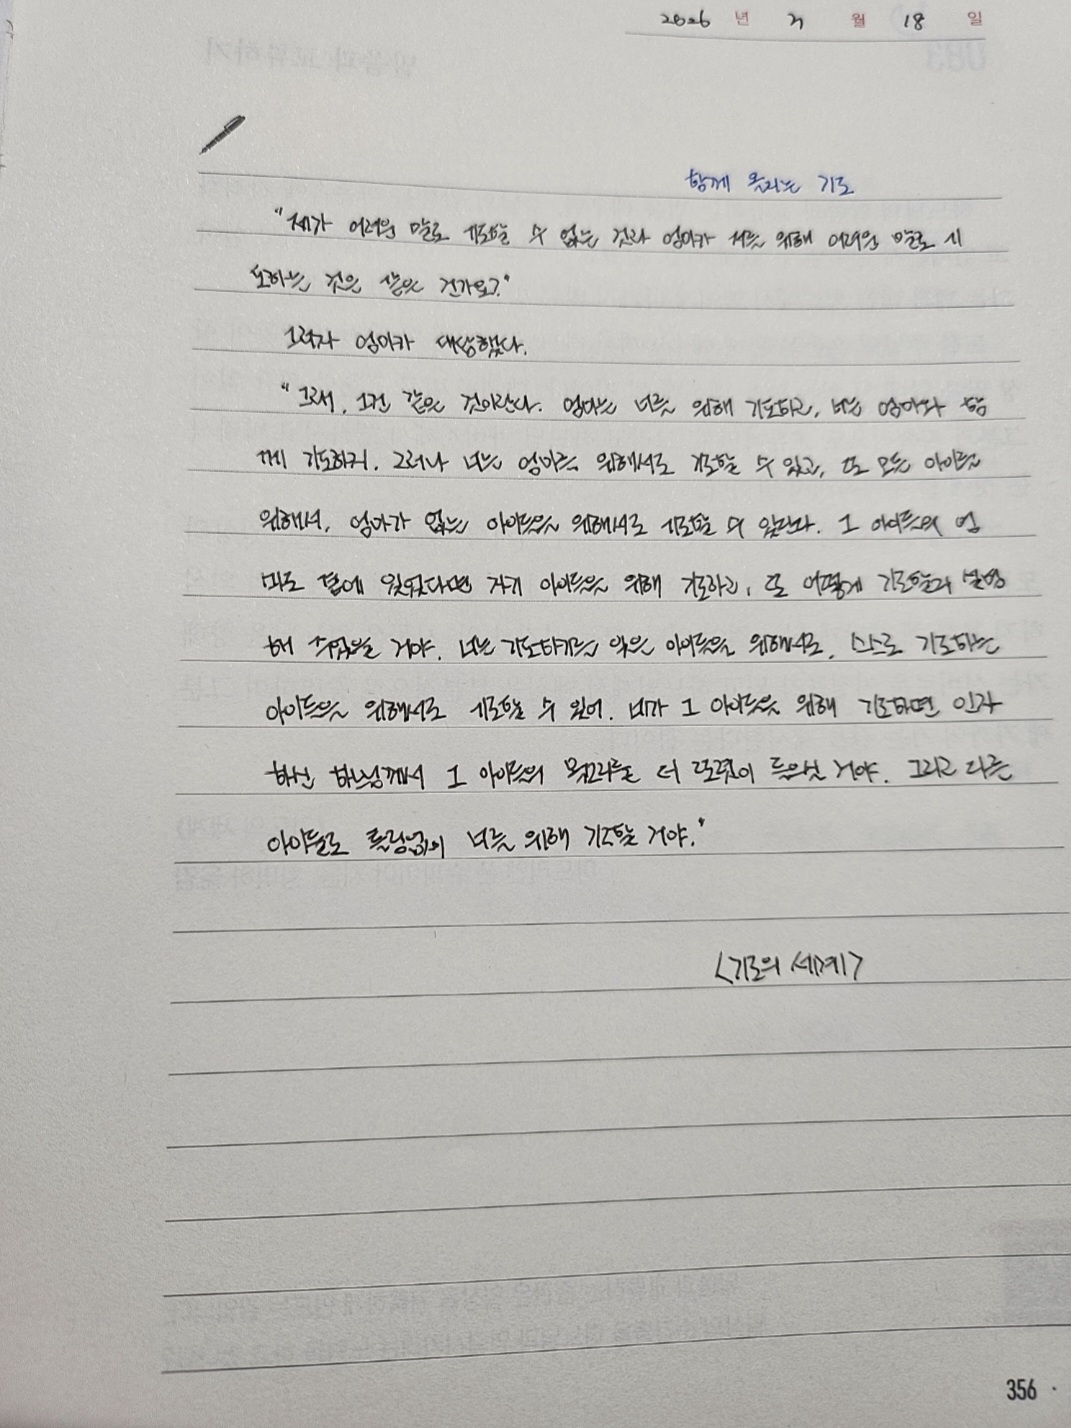 2026 년 2 월 18 일
함께 올리는 기도
"제가 어려운 말로 기도할 수 없는 것과 엄마가 저를 위해 어려운 말로 기
도하는 것은 같은 건가요?"
그러자 엄마가 대답했다.
"그래, 그건 같은 것이란다. 엄마는 너를 위해 기도하고, 너는 엄마와 함
께 기도하지. 그러나 너는 엄마를 위해서도 기도할 수 있고, 또 모든 아이를
위해서, 엄마가 없는 아이들을 위해서도 기도할 수 있단다. 그 아이들의 엄
마도 곁에 있었다면 자기 아이들을 위해 기도하고, 또 어떻게 기도할지 설명
해 주었을 거야. 너는 기도하지는 않은 아이들을 위해서도, 스스로 기도하는
아이들을 위해서도 기도할 수 있어. 네가 그 아이들을 위해 기도하면 인자
하신 하느님께서 그 아이들의 목소리를 더 또렷이 들으실 거야. 그리고 다른
아이들도 틀림없이 너를 위해 기도할 거야."
<기도의 세계>
356